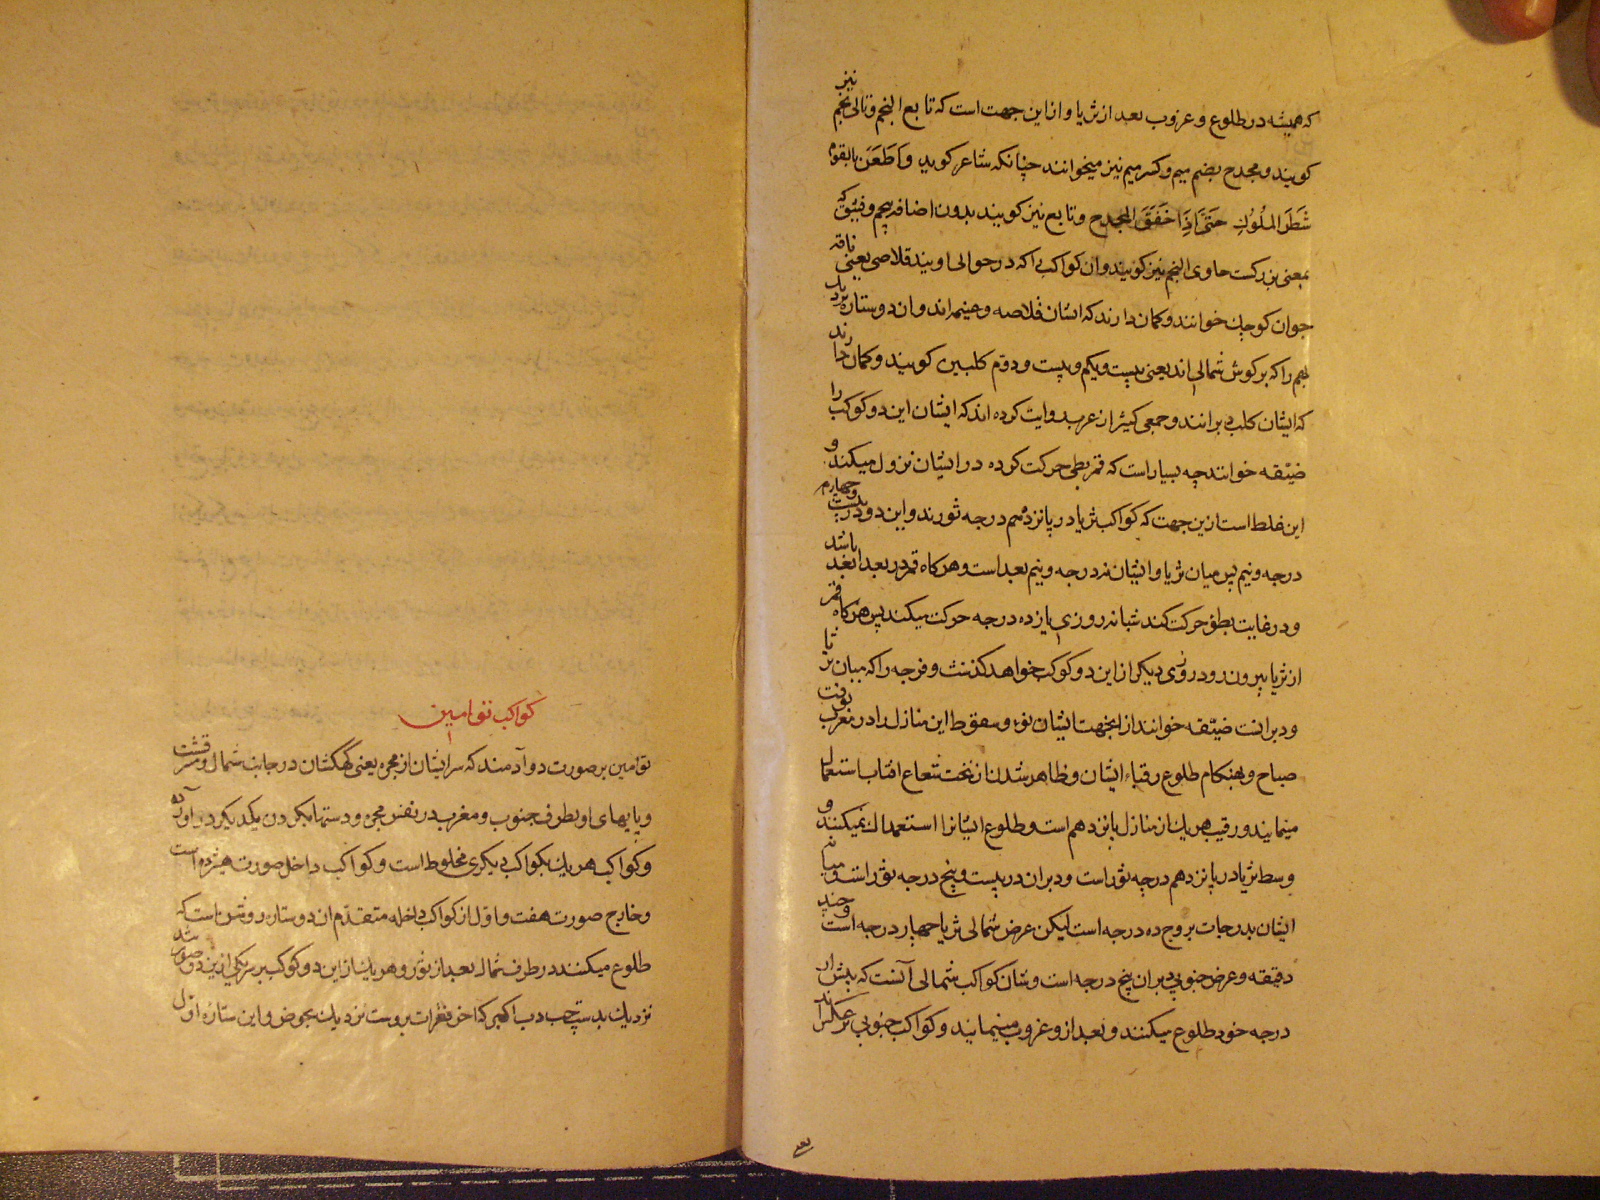 که همیشه در طلوع و غروب بعد از ثریا و از این جهت است که تابع النجم و تالی نجم نیز
کویند و مجدح بضم میم و کسر میم نیز میخوانند چنانکه شاعر کوید وَاَطعَنَ بالقوم
شَطرَ المُلُوكِ حَتَّى اِذَا خَفَقَ المجدح و تابع نیز کویند بدون اضافه بنجم و فنیق که
بمعنی بزرکست حاوی النجم نیز کویند و ان کواکبی را که در حوالی اویند قلاص یعنی ناقه
جوان کوچك خوانند و کمان دارند که ایشان قلاصه و غنیمه اند و ان دو ستاره نزدیك
بهم را که بر کوش شمالی اند یعنی بیست و یکم و بیست و دوم کلبین کویند و کمان دارند
که ایشان کلب دبرانند و جمعی کثیر از عرب روایت کرده اند که ایشان این دو کوکب را
ضیّقه خوانند چه بسیار است که قمر بطی حرکت کرده در ایشان نزول میکند و
این غلط است ازین جهت که کواکب ثریا در پانزدهم درجه ثورند و این دو در بیست و چهارم
درجه و نیم پس میان ثریا و ایشان نه درجه و نیم بعد است و هرکاه قمر در بعد ابعد باشد
و در غایت بطؤ حرکت کند شبانه روزی یازده درجه حرکت میکند پس هرکاه قمر
از ثریا بیرون رود روزی دیکر از این دو کوکب خواهد کذشت و فرجه را که میان ثریا
و دبرانست ضیّقه خوانند از اینجهت ایشان نوء و سقوط این منازل را در مغرب بوقت
صباح و بهنکام طلوع رقباء ایشان و ظاهر شدن از تحت شعاع افتاب استعمال
مینمایند و رقیب هر یك از منازل پانزدهم است و طلوع ایشانرا استعمال نمیکنند و
وسط ثریا در پانزدهم درجه ثور است و دبران در بیست و پنج درجه ثور است و میانه
ایشان بدرجات بروج ده درجه است لیکن عرض شمالی ثریا چهار درجه است و چند
دقیقه و عرض جنوبی دبران پنج درجه است و شان کواکب شمالی آنست که پیش از
درجه خود طلوع میکنند و بعد از و غروب مینمایند و کواکب جنوبی بر عکس اند
کواکب توامین
توامین بر صورت دو آدمند که سر ایشان از مجره یعنی کهکشان در جانب شمال و مشرقست
و پایهای او بطرف جنوب و مغرب در نفس مجره و دستها بکردن یکدیکر در آورده
و کواکب هر یك بکواکب دیکری مخلوط است و کواکب داخل صورت هیژده است
و خارج صورت هفت و اول از کواکب داخله متقدّم ان دو ستاره روشن است که
طلوع میکنند در طرف شمال بعد از ثور و هر یك از این دو کوکب بر سر یکی ازین دو صورتند
نزدیك بدست چپ دب اکبر که اخر نقرات بروست نزدیك بحوض و این ستاره اول